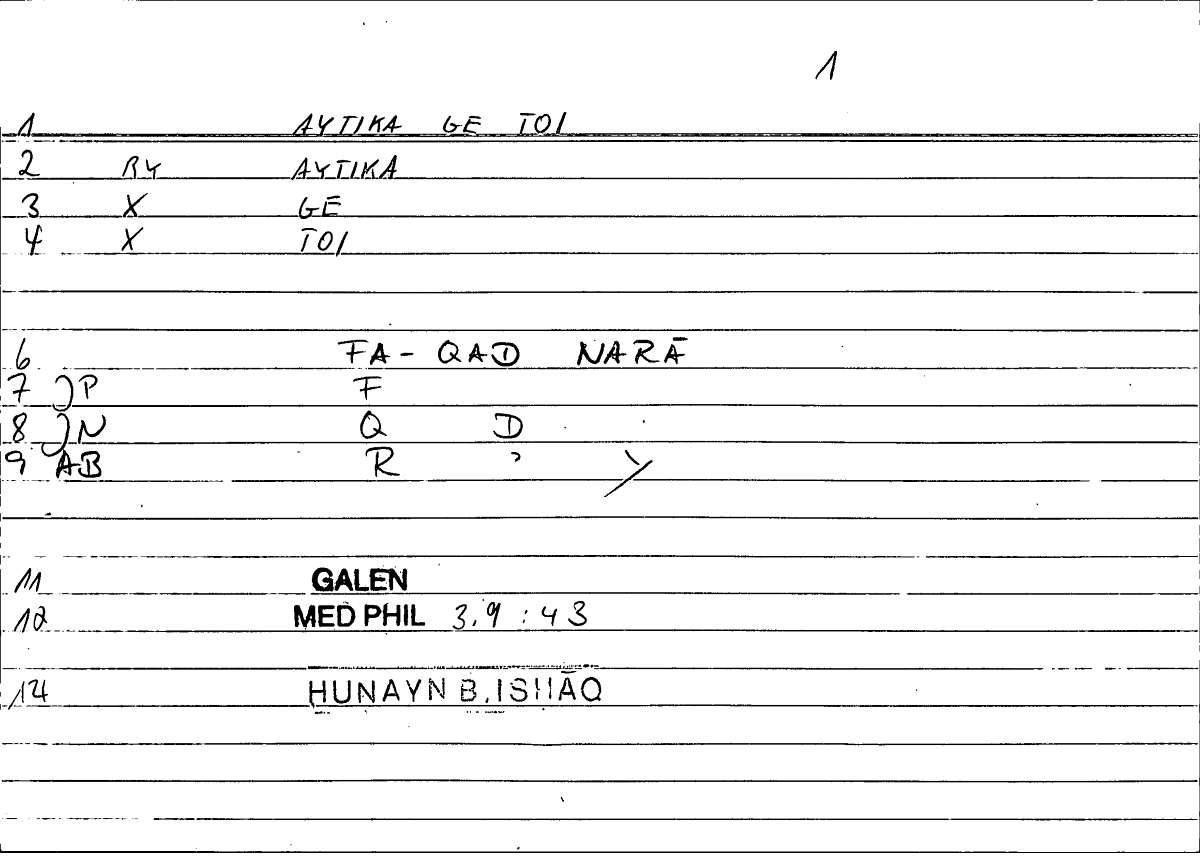 1
1 AYTIKA GE TOI
2 BY AYTIKA
3 X GE
4 X TOI
6 FA- QAD NARĀ
7 JP F
8 JN Q D
9 AB R ' Y
11 GALEN
12 MED PHIL 3.9 : 43
14 HUNAYN B. ISHĀQ